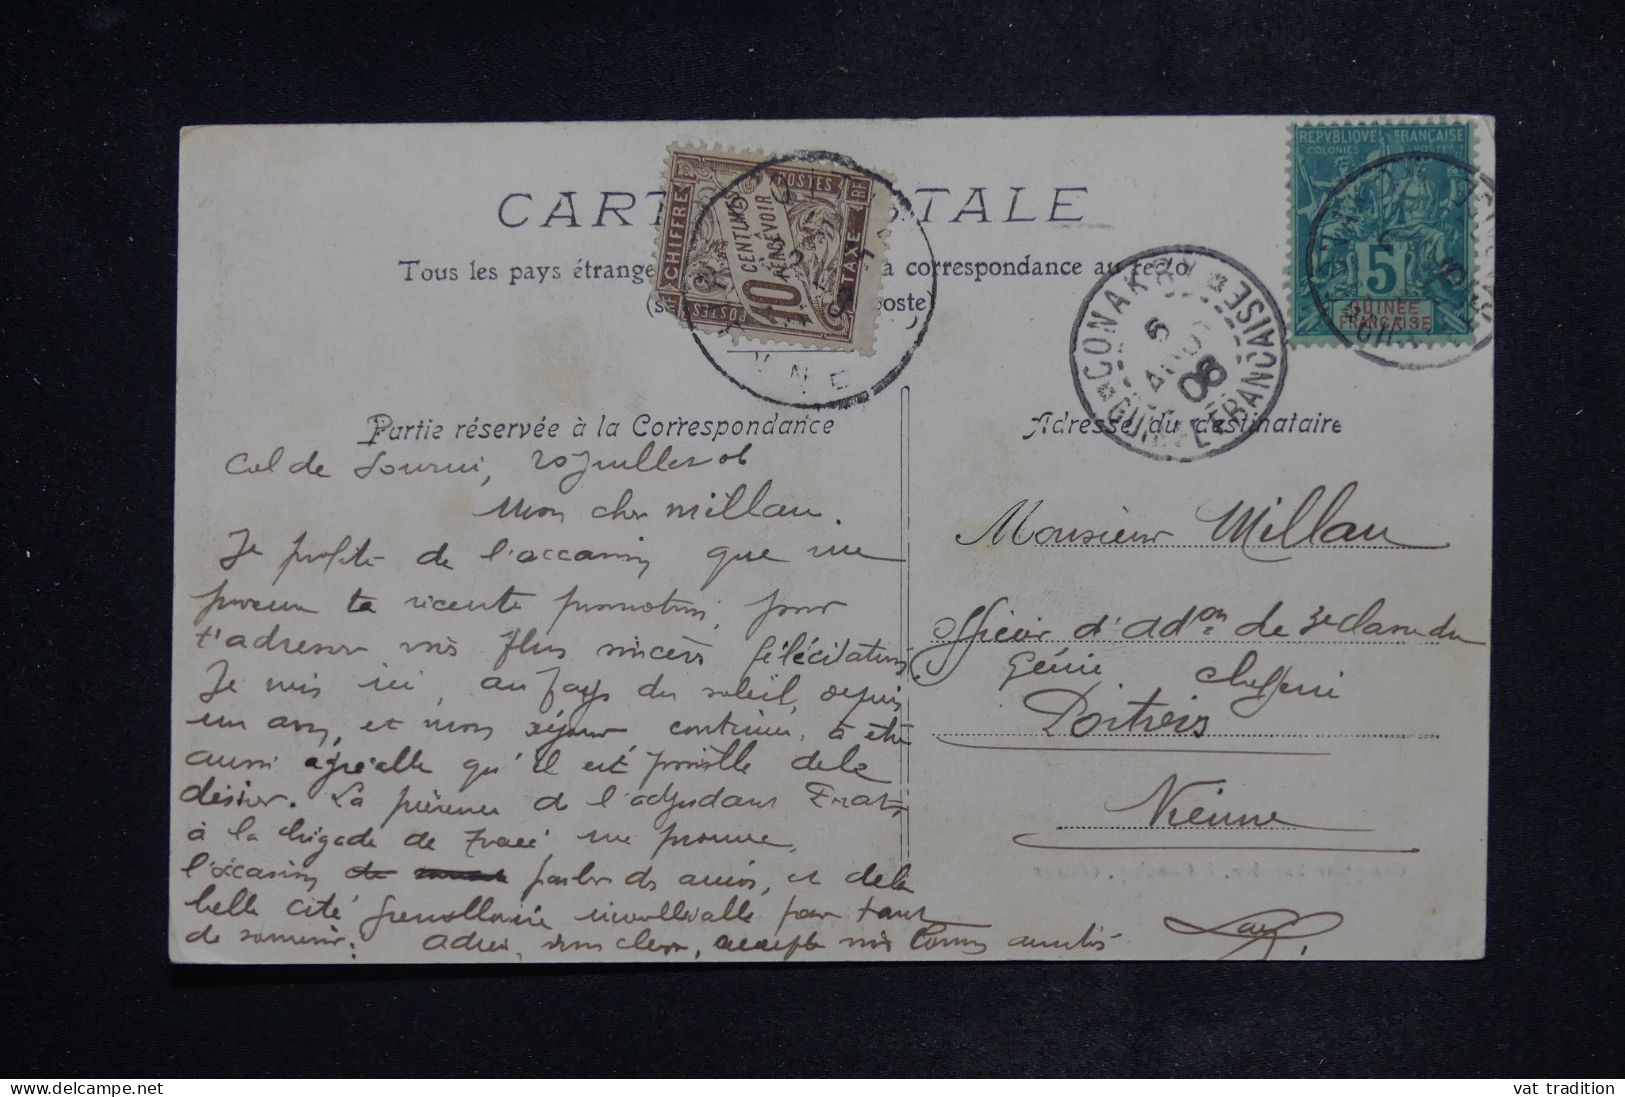 CARTE POSTALE
Tous les pays étrangers la correspondance au recto
poste)
CHIFFRE
TAXE
POSTES
RF
10
CENTIMES
À
PERCEVOIR
POSTES
REPVBLIQVE FRANÇAISE
COLONIES POSTES
5
GUINÉE
FRANÇAISE
CONAKRY
6
AOUT
06
GUINÉE FRANÇAISE
Partie réservée à la Correspondance
Adresse du destinataire
Col de 20 Juillet 06
Mon cher Millau.
Je profite de l'occasion que me
ta récente promotion, pour
t'adresser mes plus sincères félécitations
Je suis ici, au pays du soleil, depuis
un an, et mon séjour continue, à être
aussi agréable qu'il est possible de le
désirer. La présence de l'adjudant
à la brigade de me procure
l'occasion parler des amis, et de la
belle cité grenobloise inoubliable pour tant
de souvenir. Adieu, mon cher, accepte mes bonnes amitiés
Monsieur Millau
Officier d'Adon de 3e classe du
Génie Chefferie
Poitiers
Vienne
vat tradition